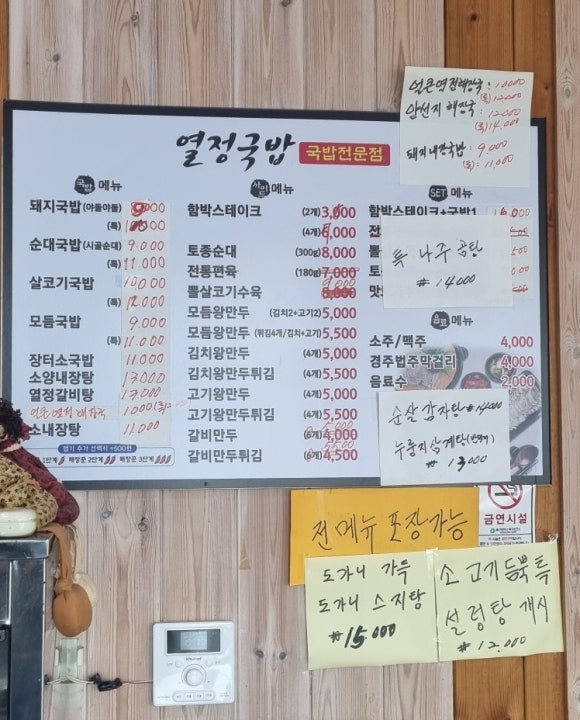 얼큰열정해장국: 10000
(특) 12000
양선지 해장국: 12000
(특) 14.000
돼지내장국밥: 9.000
(특): 11.000
열정국밥 국밥전문점
국밥 메뉴
돼지국밥(야들야들) 9000
(특)
순대국밥(시골순대) 9.000
(특) 11.000
살코기국밥 10.000
(특) 12.000
모듬국밥 9.000
(특) 11.000
장터소국밥 11.000
소양내장탕 13.000
열정갈비탕 13.000
얼큰열정해장국
소내장탕 11.000
맵기 추가 선택시 +500원
1단계 해장꾼 2단계 해장꾼 3단계
메뉴
함박스테이크 (2개)
(4개)
토종순대 (300g) 8,000
전통편육 (180g) 7,000
뽈살코기수육 9.000 8,000
모듬왕만두 (김치2+고기2) 5,000
모듬왕만두 (튀김4개/김치+고기) 5,500
김치왕만두 (4개) 5,000
김치왕만두튀김 (4개) 5,500
고기왕만두 (4개) 5,000
고기왕만두튀김 (4개) 5,500
갈비만두 4,000
갈비만두튀김 4,500
SET 메뉴
함박스테이크+국밥1
특 나주곰탕
₩14000
음료 메뉴
소주/맥주 4,000
경주법주막걸리 4,000
음료수 2,000
순살 감자탕 ₩14000
누룽지삼계탕
₩13000
금연시설
전메뉴 포장가능
도가니 가득
도가니 스지탕
₩15000
소고기듬뿍특
설렁탕 개시
₩12.000